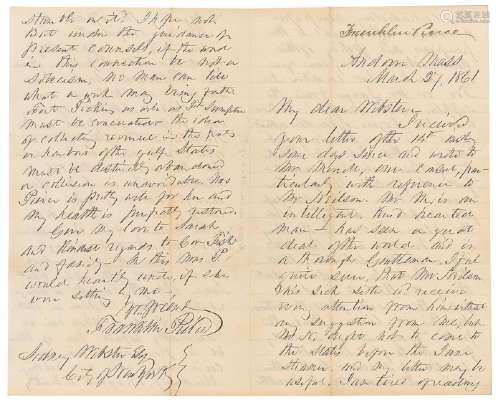 Franklin Pierce
Andover Mass
March 27, 1861
My dear Webster,
I received
your letter of the 14th
some days since and wrote to
Mr our Consul, par-
ticularly with reference to
Mr Neilson. Mr M. is an
intelligent, kind hearted
man - has seen a great
deal of the world, and is
a thorough Gentleman. I feel
quite sure, that Mr Neilson
& his sick sister will receive
every attention from him without
any suggestion from me, but
Mr N. ought not to come to
the States before the June
Steamer and my letter may be
useful. I am tired of reading
storm the on it? I hope not.
But under the guidance of
present counsels, if the word
in this connection be not a
solecism, no man can tell
what a week may bring forth.
Fort Pickens as well as Ft Sumpter
must be evacuated & the idea
of collecting revenue in the ports
or harbors of the gulf States
must be distinctly abandoned
or collision is unavoidable. Mrs
Pierce is pretty well for her and
my health is perfectly restored.
Give my love to Sarah
and kindest regards to Gov Fish
and family. In this Mrs P.
would heartily unite, if she
were sitting by me.
Yr friend
Franklin Pierce
Sidney Webster Esq
City of New York